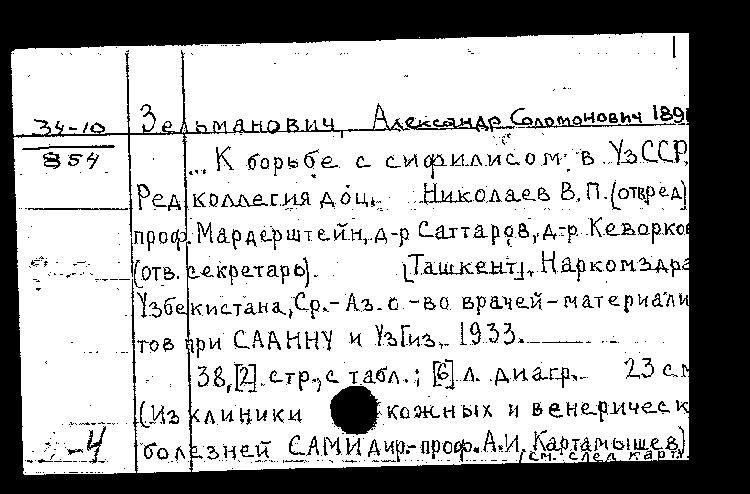 34-10
854
Зельманович, Александр Соломонович 189
... К борьбе с сифилисом в УзССР.
Ред коллегия доц. Николаев В.П. (отвред)
проф. Мардерштейн, д-р Саттаров, д-р Кеворков
(отв. секретарь). [Ташкент], Наркомздра
Узбекистана, Ср.-Аз. о-во врачей-материали
тов при и УзГиз, 1933.
38, [2] стр., с табл.; [6] л. диагр. 23 см
(Из клиники кожных и венерическ
болезней САМИ дир.-проф. А.И. Картамышев)
(см. след карт.
-4